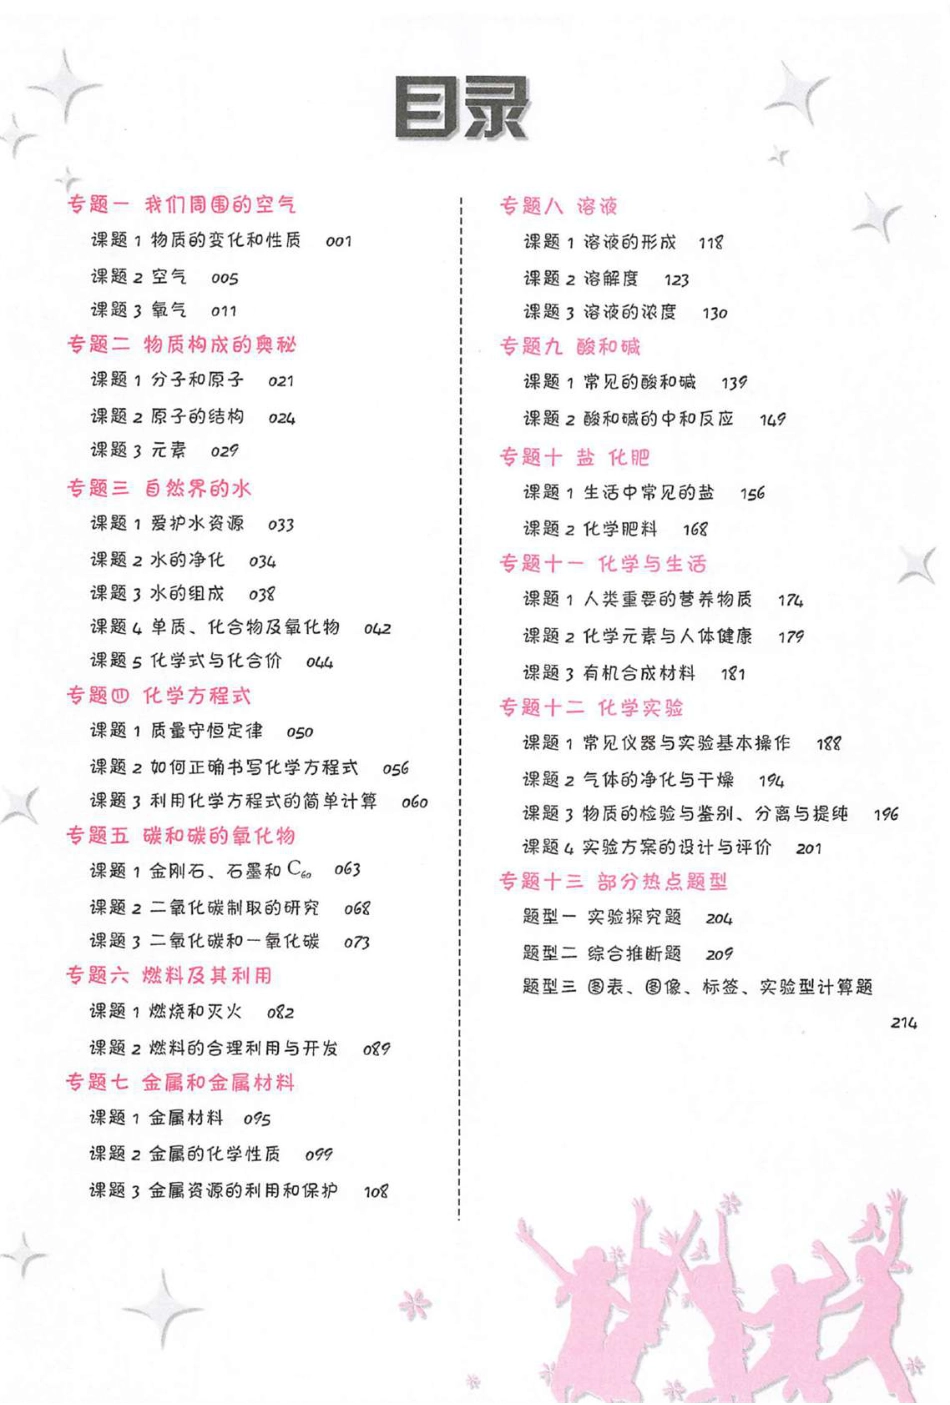 目录
专题一 我们周围的空气
课题 1 物质的变化和性质 001
课题 2 空气 005
课题 3 氧气 011
专题二 物质构成的奥秘
课题 1 分子和原子 021
课题 2 原子的结构 024
课题 3 元素 029
专题三 自然界的水
课题 1 爱护水资源 033
课题 2 水的净化 034
课题 3 水的组成 038
课题 4 单质、化合物及氧化物 042
课题 5 化学式与化合价 044
专题四 化学方程式
课题 1 质量守恒定律 050
课题 2 如何正确书写化学方程式 056
课题 3 利用化学方程式的简单计算 060
专题五 碳和碳的氧化物
课题 1 金刚石、石墨和 C₆₀ 063
课题 2 二氧化碳制取的研究 068
课题 3 二氧化碳和一氧化碳 073
专题六 燃料及其利用
课题 1 燃烧和灭火 082
课题 2 燃料的合理利用与开发 089
专题七 金属和金属材料
课题 1 金属材料 095
课题 2 金属的化学性质 099
课题 3 金属资源的利用和保护 108
专题八 溶液
课题 1 溶液的形成 118
课题 2 溶解度 123
课题 3 溶液的浓度 130
专题九 酸和碱
课题 1 常见的酸和碱 139
课题 2 酸和碱的中和反应 149
专题十 盐 化肥
课题 1 生活中常见的盐 156
课题 2 化学肥料 168
专题十一 化学与生活
课题 1 人类重要的营养物质 174
课题 2 化学元素与人体健康 179
课题 3 有机合成材料 181
专题十二 化学实验
课题 1 常见仪器与实验基本操作 188
课题 2 气体的净化与干燥 194
课题 3 物质的检验与鉴别、分离与提纯 196
课题 4 实验方案的设计与评价 201
专题十三 部分热点题型
题型一 实验探究题 204
题型二 综合推断题 209
题型三 图表、图像、标签、实验型计算题
214